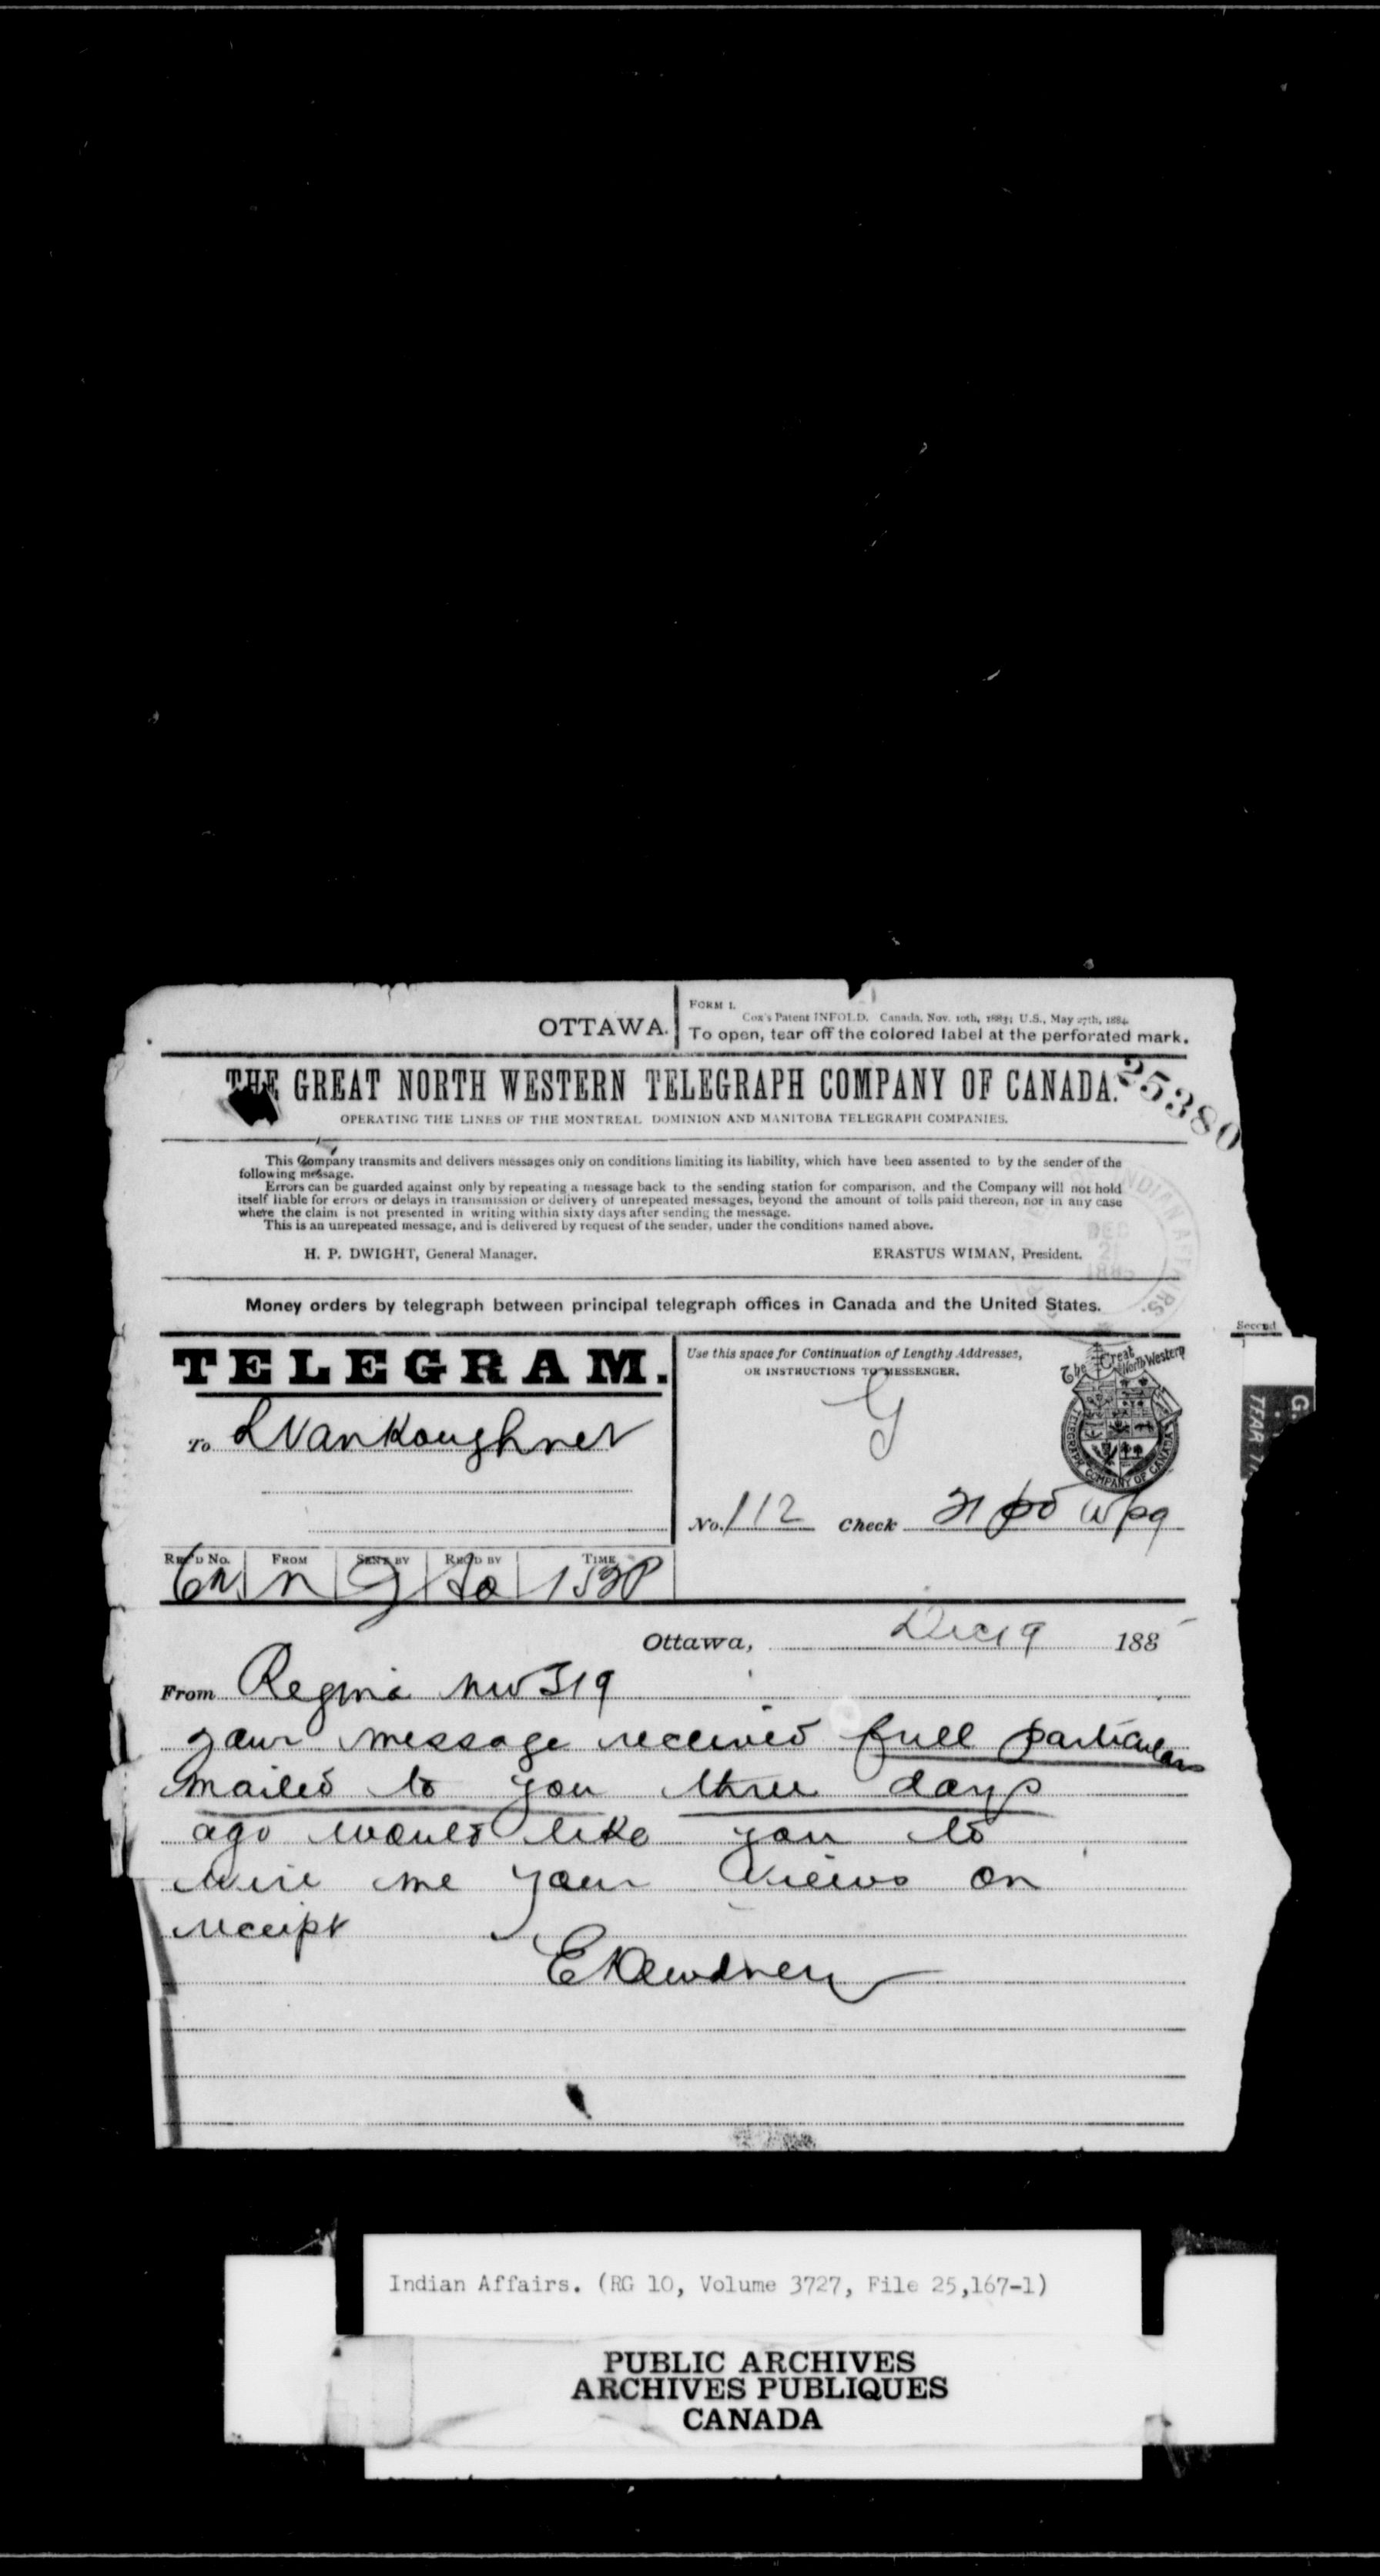 FORM 1.
Cox's Patent INFOLD. Canada, Nov. 10th, 1883; U.S., May 27th, 1884.
OTTAWA. To open, tear off the colored label at the perforated mark.
THE GREAT NORTH WESTERN TELEGRAPH COMPANY OF CANADA.
25380
OPERATING THE LINES OF THE MONTREAL DOMINION AND MANITOBA TELEGRAPH COMPANIES.
This Company transmits and delivers messages only on conditions limiting its liability, which have been assented to by the sender of the
following message.
Errors can be guarded against only by repeating a message back to the sending station for comparison, and the Company will not hold
itself liable for errors or delays in transmission or delivery of unrepeated messages, beyond the amount of tolls paid thereon, nor in any case
where the claim is not presented in writing within sixty days after sending the message.
This is an unrepeated message, and is delivered by request of the sender, under the conditions named above.
H. P. DWIGHT, General Manager. ERASTUS WIMAN, President.
INDIAN AFFAIRS.
DEC
21
1885
Money orders by telegraph between principal telegraph offices in Canada and the United States.
Second
TELEGRAM.
Use this space for Continuation of Lengthy Addresses,
OR INSTRUCTIONS TO MESSENGER.
The Great North Western
TELEGRAPH COMPANY OF CANADA
G.
TEAR
G
To L VanKoughnet
No. 112 Check 21 wpg
REC'D No. FROM SENT BY REC'D BY TIME
Ottawa, Dec 19 1885
From Regina NWT 19
your message received full particulars
mailed to you three days
ago would like you to
wire me your views on
receipt
E Dewdney
Indian Affairs. (RG 10, Volume 3727, File 25,167-1)
PUBLIC ARCHIVES
ARCHIVES PUBLIQUES
CANADA